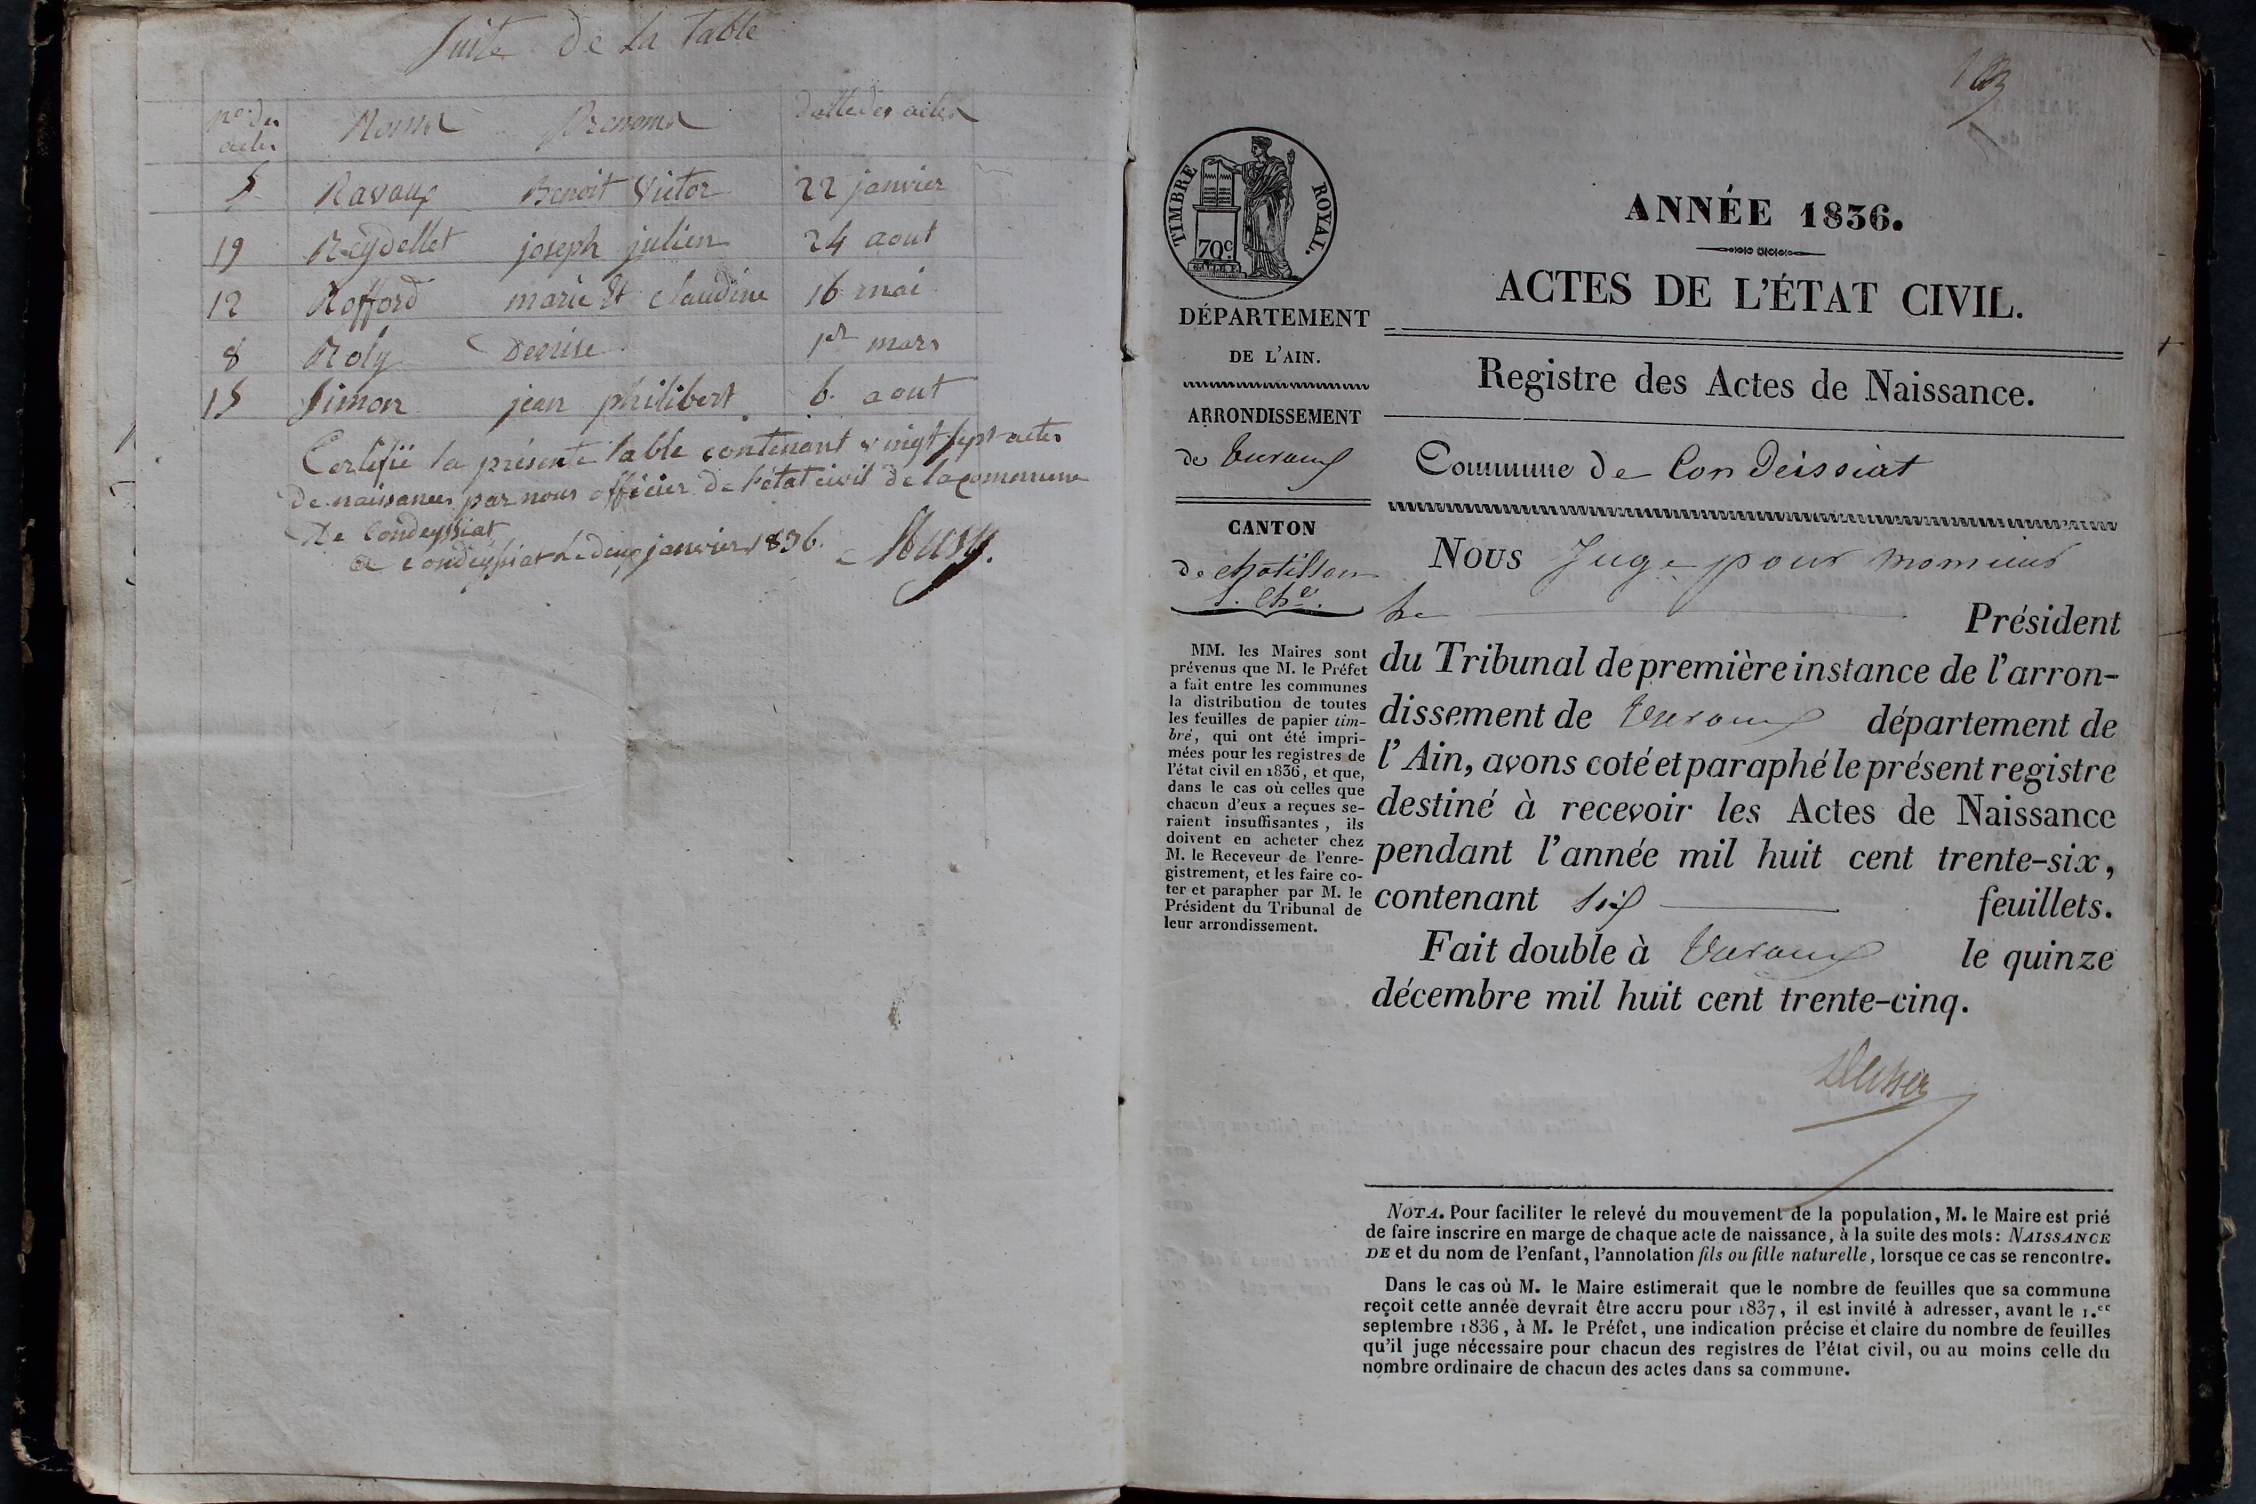 Suite De la Table
nos des actes
Noms
Prenoms
datte des actes
5 Ravoux Benoit Victor 22 janvier
19 Reydellet joseph julien 24 aout
12 Rofford marie et claudine 16 mai
8 Roly Denise 1er mars
15 Simon jean philibert 6 aout
Certifié la présente table contenant vingt sept actes
de naissances par nous officier de l'état civil de la commune
de Condeyssiat
a condeyssiat le deux janvier 1836.
TIMBRE ROYAL.
70c.
DÉPARTEMENT
DE L'AIN.
ARRONDISSEMENT
de Trévoux
CANTON
de chatillon
s. Chne.
MM. les Maires sont
prévenus que M. le Préfet
a fait entre les communes
la distribution de toutes
les feuilles de papier tim-
bré, qui ont été impri-
mées pour les registres de
l'état civil en 1836, et que,
dans le cas où celles que
chacun d'eux a reçues se-
raient insuffisantes, ils
doivent en acheter chez
M. le Receveur de l'enre-
gistrement, et les faire co-
ter et parapher par M. le
Président du Tribunal de
leur arrondissement.
ANNÉE 1836.
ACTES DE L'ÉTAT CIVIL.
Registre des Actes de Naissance.
Commune de Condeissiat
Nous Juge pour monsieur
le Président
du Tribunal de première instance de l'arron-
dissement de Trévoux département de
l'Ain, avons coté et paraphé le présent registre
destiné à recevoir les Actes de Naissance
pendant l'année mil huit cent trente-six,
contenant six feuillets.
Fait double à Trévoux le quinze
décembre mil huit cent trente-cinq.
NOTA. Pour faciliter le relevé du mouvement de la population, M. le Maire est prié
de faire inscrire en marge de chaque acte de naissance, à la suite des mots: NAISSANCE
DE et du nom de l'enfant, l'annotation fils ou fille naturelle, lorsque ce cas se rencontre.
Dans le cas où M. le Maire estimerait que le nombre de feuilles que sa commune
reçoit cette année devrait être accru pour 1837, il est invité à adresser, avant le 1.er
septembre 1836, à M. le Préfet, une indication précise et claire du nombre de feuilles
qu'il juge nécessaire pour chacun des registres de l'état civil, ou au moins celle du
nombre ordinaire de chacun des actes dans sa commune.